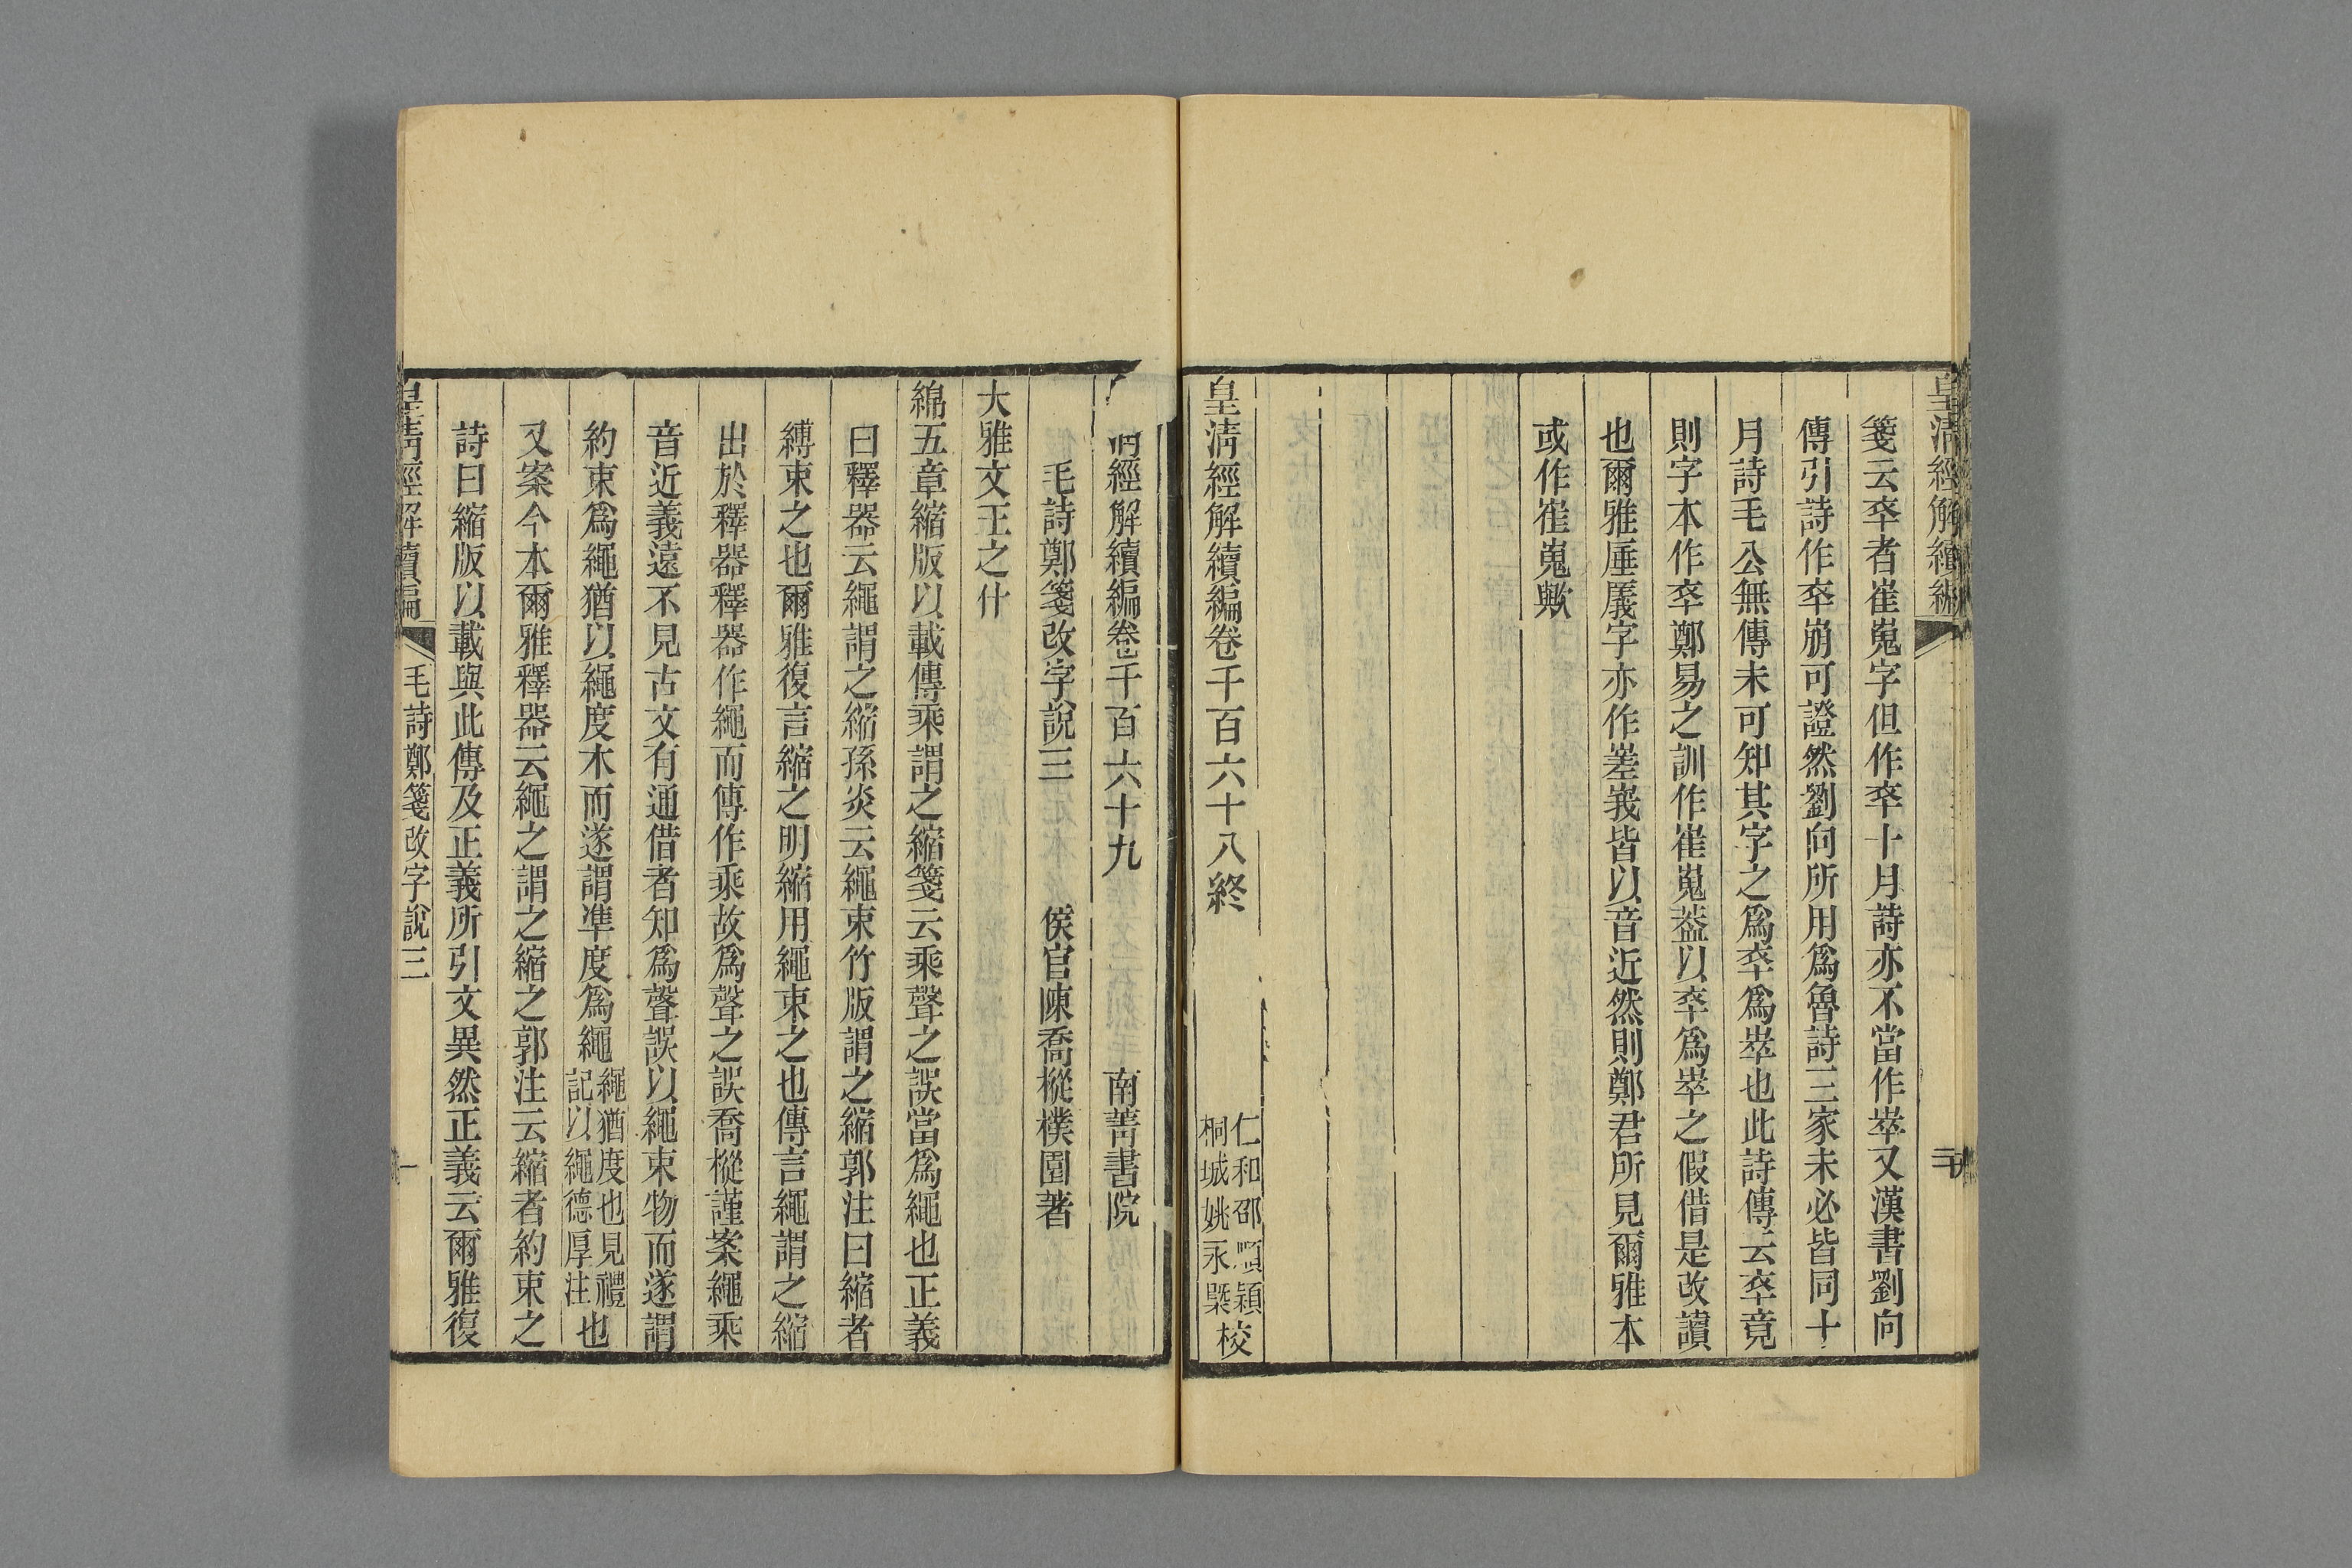 皇清經解續編
箋云卒者崔嵬字但作卒十月詩亦不當作崒又漢書劉向
傳引詩作卒崩可證然劉向所用爲魯詩三家未必皆同十
月詩毛公無傳未可知其字之爲卒爲崒也此詩傳云卒竟
則字本作卒鄭易之訓作崔嵬葢以卒爲崒之假借是改讀
也爾雅厜㕒字亦作嵳峩皆以音近然則鄭君所見爾雅本
或作崔嵬歟
皇清經解續編卷千百六十八終
仁和邵順穎
桐城姚永㮣
校
清經解續編卷千百六十九
南菁書院
毛詩鄭箋改字說三
侯官陳喬樅樸園著
大雅文王之什
綿五章縮版以載傳乘謂之縮箋云乘聲之誤當爲繩也正義
曰釋器云繩謂之縮孫炎云繩束竹版謂之縮郭注曰縮者
縛束之也爾雅復言縮之明縮用繩束之也傳言繩謂之縮
出於釋器釋器作繩而傳作乘故爲聲之誤喬樅謹案繩乘
音近義遠不見古文有通借者知爲聲誤以繩束物而遂謂
約束爲繩猶以繩度木而遂謂準度爲繩
繩猶度也見禮
記以繩德厚注
也
又案今本爾雅釋器云繩之謂之縮之郭注云縮者約束之
詩曰縮版以載與此傳及正義所引文異然正義云爾雅復
皇清經解續編
毛詩鄭箋改字說三
一